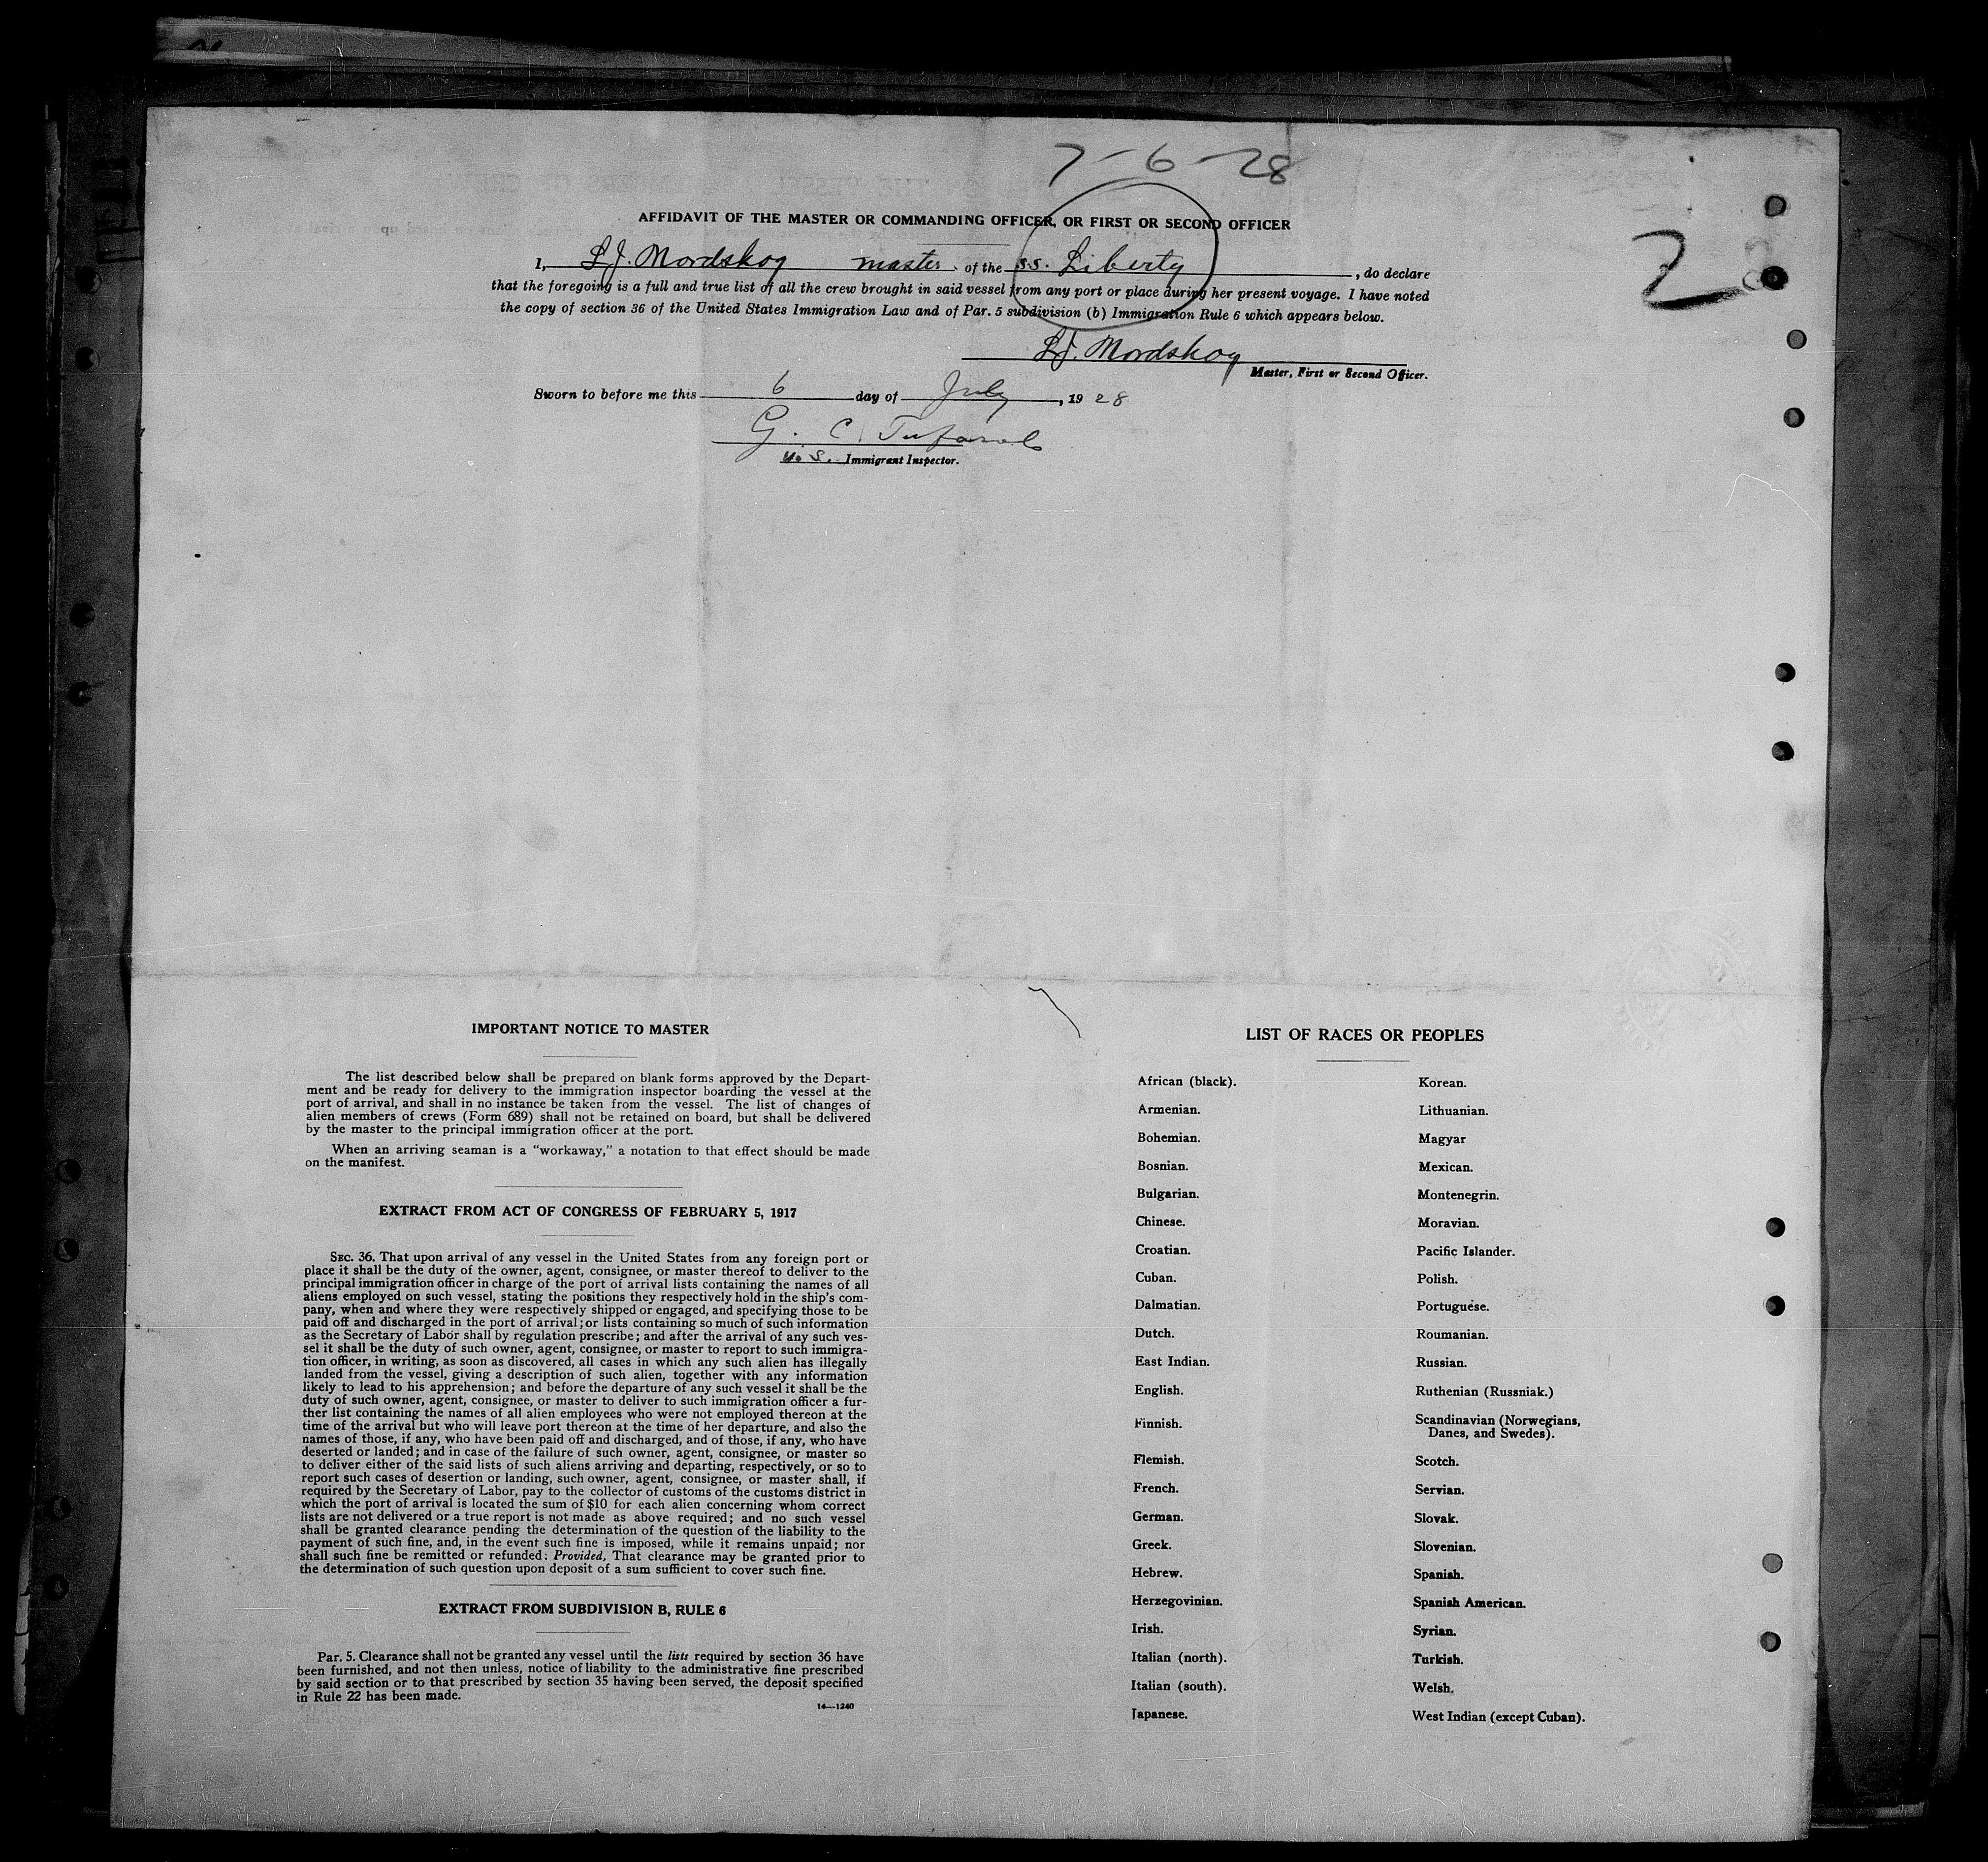 7-6-28
2
AFFIDAVIT OF THE MASTER OR COMMANDING OFFICER, OR FIRST OR SECOND OFFICER
I, L.J. Nordskog master of the s.s. Liberty, do declare
that the foregoing is a full and true list of all the crew brought in said vessel from any port or place during her present voyage. I have noted
the copy of section 36 of the United States Immigration Law and of Par. 5 subdivision (b) Immigration Rule 6 which appears below.
L.J. Nordskog
Master, First or Second Officer.
Sworn to before me this 6 day of July, 1928
G. C.
U.S. Immigrant Inspector.
IMPORTANT NOTICE TO MASTER
The list described below shall be prepared on blank forms approved by the Depart-
ment and be ready for delivery to the immigration inspector boarding the vessel at the
port of arrival, and shall in no instance be taken from the vessel. The list of changes of
alien members of crews (Form 689) shall not be retained on board, but shall be delivered
by the master to the principal immigration officer at the port.
When an arriving seaman is a "workaway," a notation to that effect should be made
on the manifest.
EXTRACT FROM ACT OF CONGRESS OF FEBRUARY 5, 1917
SEC. 36. That upon arrival of any vessel in the United States from any foreign port or
place it shall be the duty of the owner, agent, consignee, or master thereof to deliver to the
principal immigration officer in charge of the port of arrival lists containing the names of all
aliens employed on such vessel, stating the positions they respectively hold in the ship's com-
pany, when and where they were respectively shipped or engaged, and specifying those to be
paid off and discharged in the port of arrival; or lists containing so much of such information
as the Secretary of Labor shall by regulation prescribe; and after the arrival of any such ves-
sel it shall be the duty of such owner, agent, consignee, or master to report to such immigra-
tion officer, in writing, as soon as discovered, all cases in which any such alien has illegally
landed from the vessel, giving a description of such alien, together with any information
likely to lead to his apprehension; and before the departure of any such vessel it shall be the
duty of such owner, agent, consignee, or master to deliver to such immigration officer a fur-
ther list containing the names of all alien employees who were not employed thereon at the
time of the arrival but who will leave port thereon at the time of her departure, and also the
names of those, if any, who have been paid off and discharged, and of those, if any, who have
deserted or landed; and in case of the failure of such owner, agent, consignee, or master so
to deliver either of the said lists of such aliens arriving and departing, respectively, or so to
report such cases of desertion or landing, such owner, agent, consignee, or master shall, if
required by the Secretary of Labor, pay to the collector of customs of the customs district in
which the port of arrival is located the sum of $10 for each alien concerning whom correct
lists are not delivered or a true report is not made as above required; and no such vessel
shall be granted clearance pending the determination of the question of the liability to the
payment of such fine, and, in the event such fine is imposed, while it remains unpaid; nor
shall such fine be remitted or refunded: Provided, That clearance may be granted prior to
the determination of such question upon deposit of a sum sufficient to cover such fine.
EXTRACT FROM SUBDIVISION B, RULE 6
Par. 5. Clearance shall not be granted any vessel until the lists required by section 36 have
been furnished, and not then unless, notice of liability to the administrative fine prescribed
by said section or to that prescribed by section 35 having been served, the deposit specified
in Rule 22 has been made.
14—1240
LIST OF RACES OR PEOPLES
African (black).
Armenian.
Bohemian.
Bosnian.
Bulgarian.
Chinese.
Croatian.
Cuban.
Dalmatian.
Dutch.
East Indian.
English.
Finnish.
Flemish.
French.
German.
Greek.
Hebrew.
Herzegovinian.
Irish.
Italian (north).
Italian (south).
Japanese.
Korean.
Lithuanian.
Magyar
Mexican.
Montenegrin.
Moravian.
Pacific Islander.
Polish.
Portuguese.
Roumanian.
Russian.
Ruthenian (Russniak.)
Scandinavian (Norwegians,
Danes, and Swedes).
Scotch.
Servian.
Slovak.
Slovenian.
Spanish.
Spanish American.
Syrian.
Turkish.
Welsh.
West Indian (except Cuban).